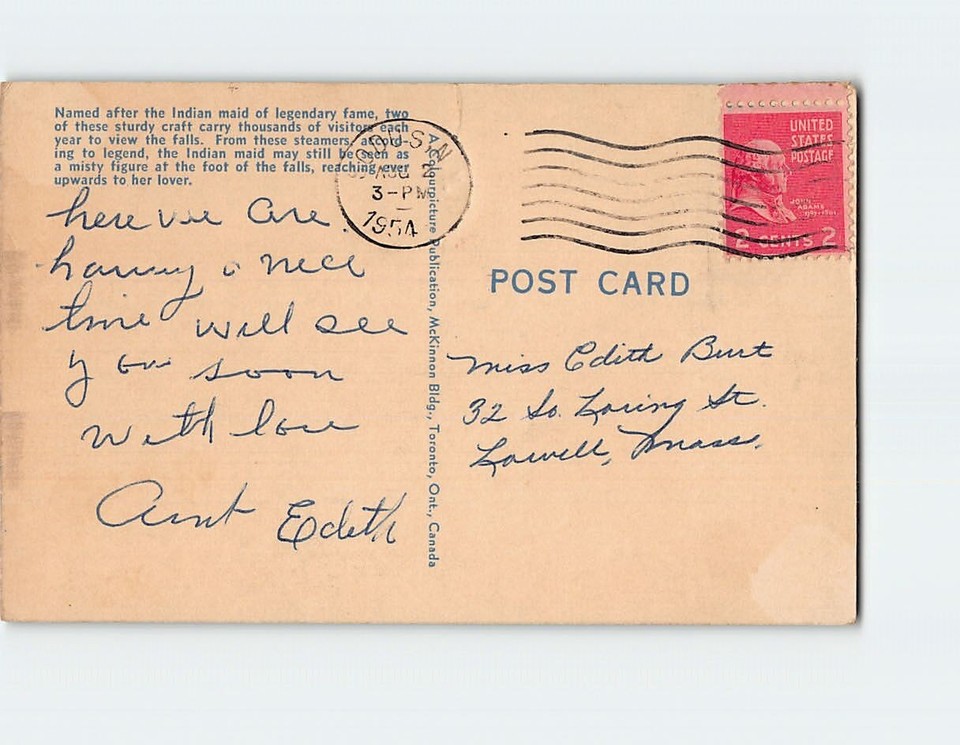 Named after the Indian maid of legendary fame, two
of these sturdy craft carry thousands of visitors each
year to view the falls. From these steamers, accord-
ing to legend, the Indian maid may still be seen as
a misty figure at the foot of the falls, reaching ever
upwards to her lover.
here we are
having a nice
time will see
you soon
with love
Aunt Edith
A Colourpicture Publication, McKinnon Bldg., Toronto, Ont., Canada
AUG 2
3-PM
1954
UNITED
STATES
POSTAGE
JOHN
ADAMS
1797-1801
2 CENTS 2
POST CARD
Miss Edith Burt
32 So. Loring St.
Lowell, Mass.